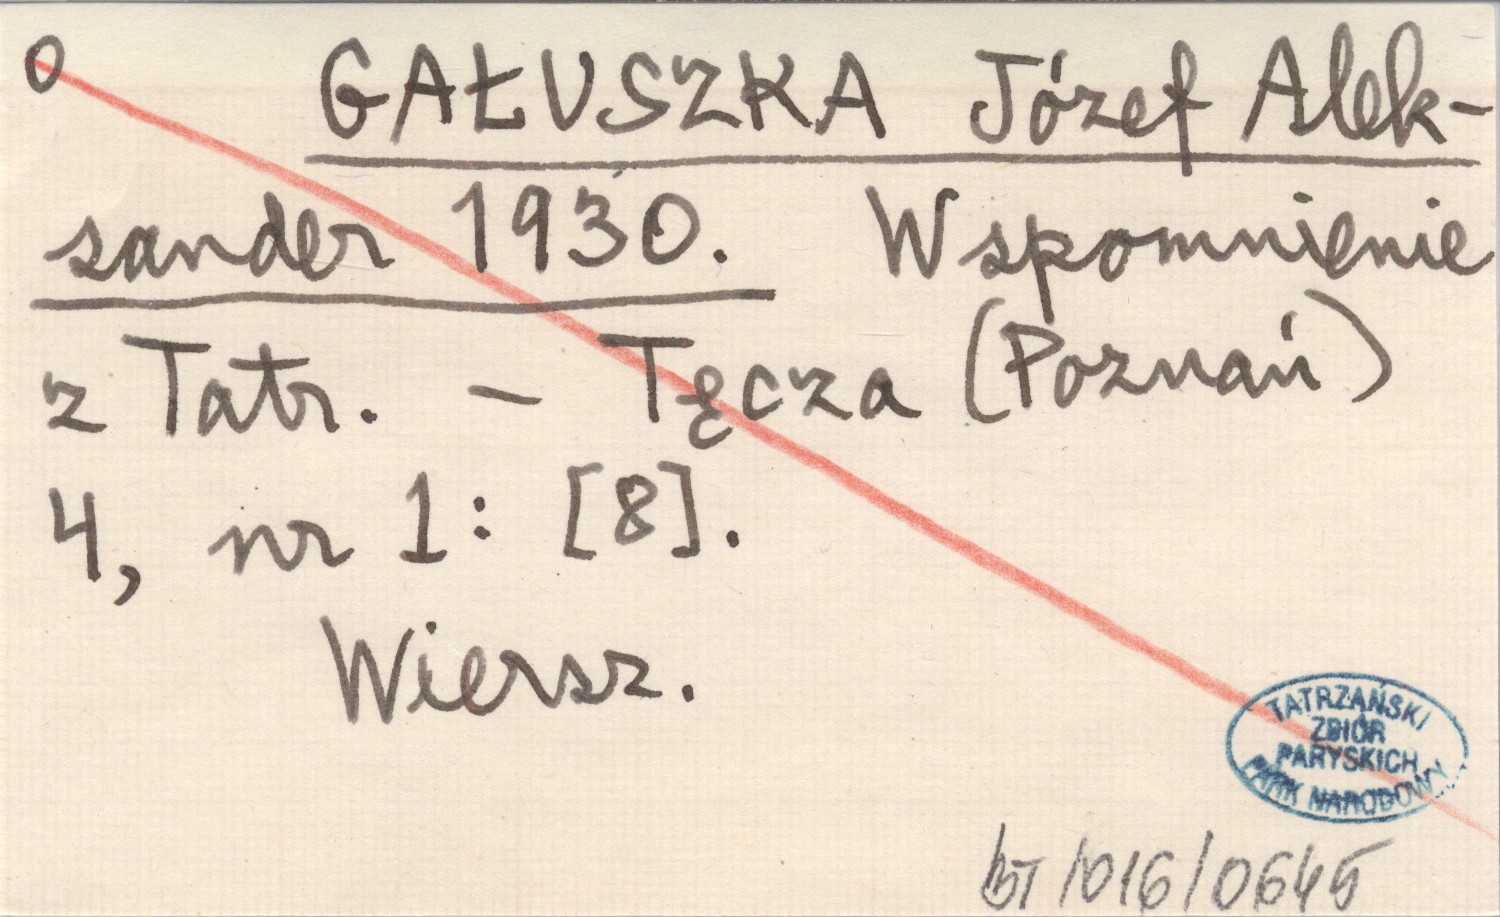 0 GAŁUSZKA Józef Alek-
sander 1930. Wspomnienie
z Tatr. – Tęcza (Poznań)
4, nr 1: [8].
Wiersz.
TATRZAŃSKI
ZBIÓR
PARYSKICH
PARK NARODOWY
BT/016/0645